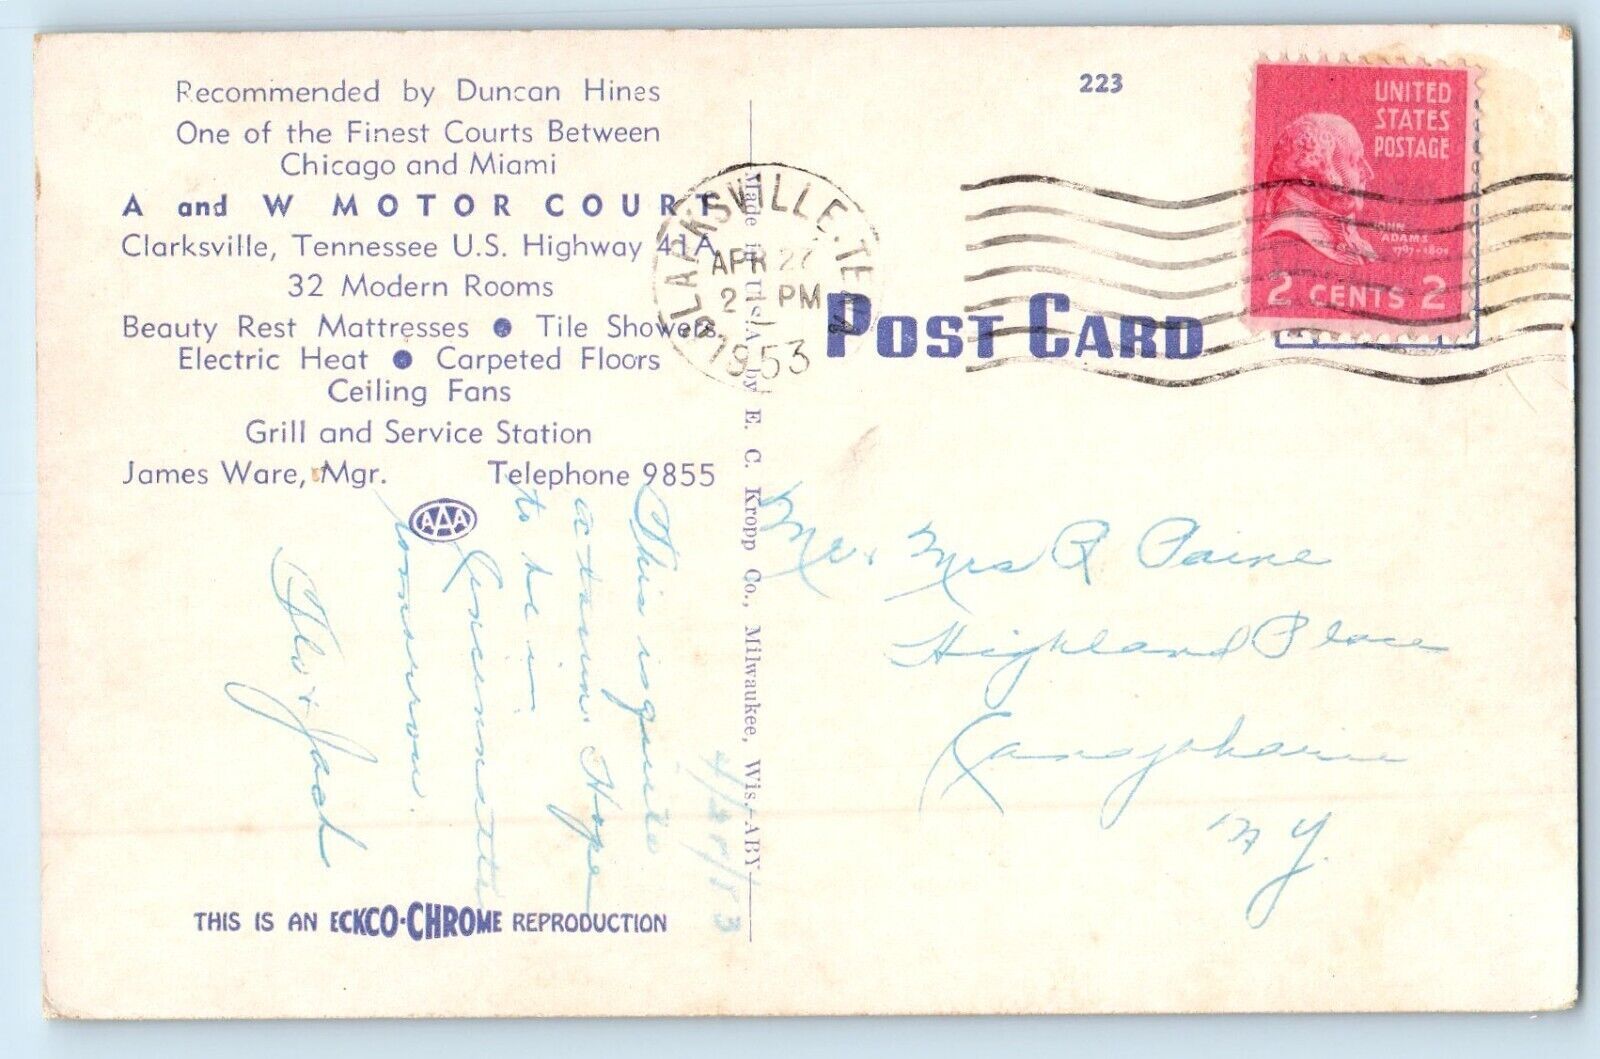 Recommended by Duncan Hines
One of the Finest Courts Between
Chicago and Miami
A and W MOTOR COURT
Clarksville, Tennessee U.S. Highway 41A
32 Modern Rooms
Beauty Rest Mattresses ● Tile Showers
Electric Heat ● Carpeted Floors
Ceiling Fans
Grill and Service Station
James Ware, Mgr. Telephone 9855
AAA
This is quite
a town. Hope
to be in
Cincinnatti
tomorrow.
Flo + Jack
4/27/53
THIS IS AN ECKCO-CHROME REPRODUCTION
Made in U.S.A. by E. C. Kropp Co., Milwaukee, Wis.-ABY
CLARKSVILLE, TEN
APR 27
2 PM
1953
223
POST CARD
UNITED
STATES
POSTAGE
JOHN
ADAMS
1797-1801
2 CENTS 2
Mr. Mrs R Paine
Highland Place
Canajoharie
N Y.